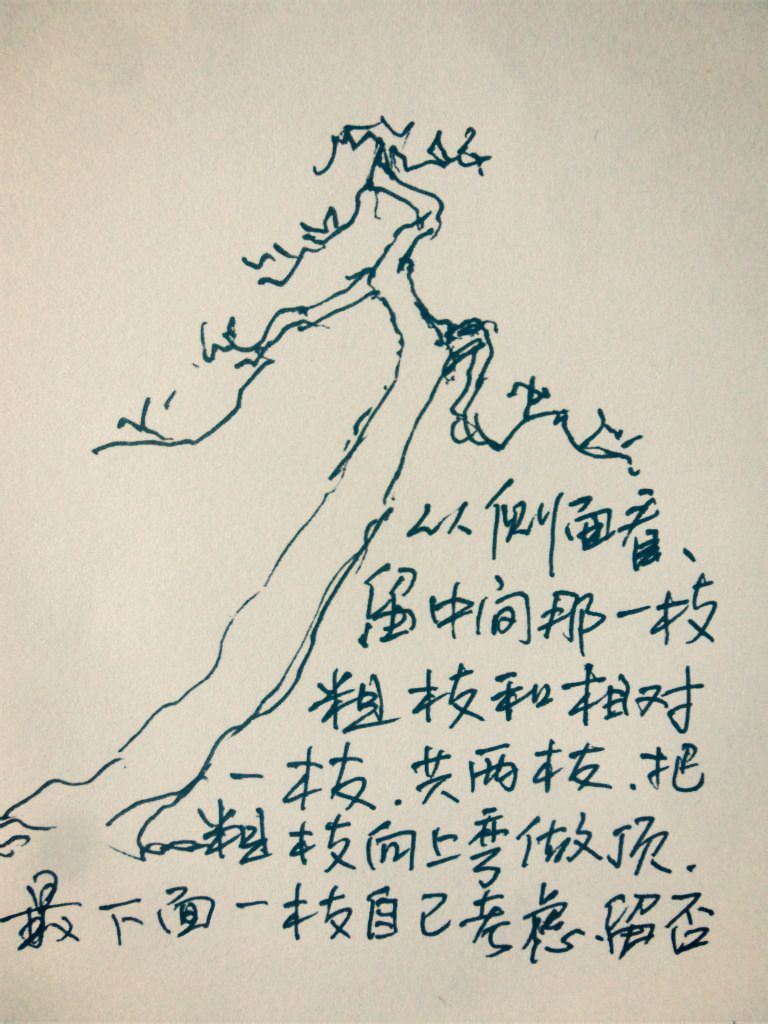 从侧面看、
留中间那一枝
粗枝和相对
一枝.共两枝.把
粗枝向上弯做顶.
最下面一枝自己考虑.留否